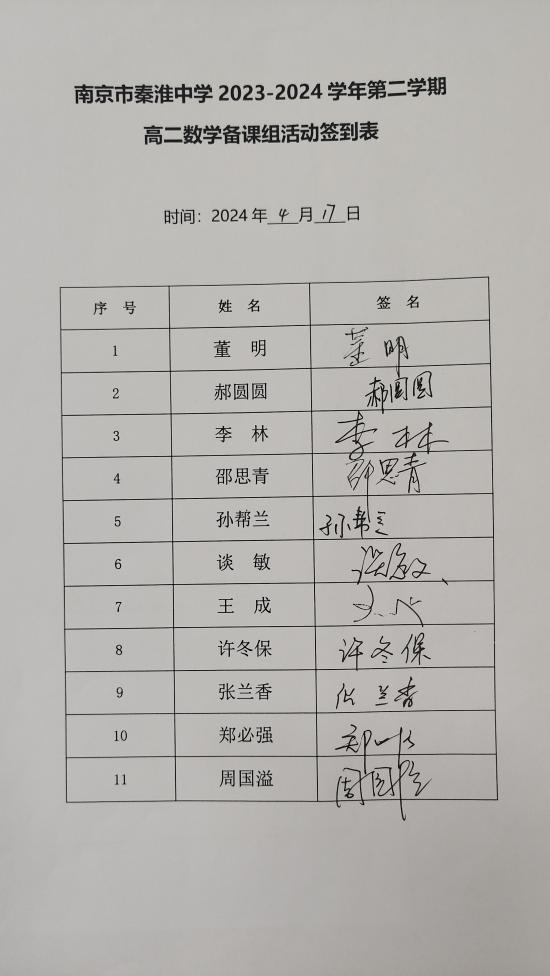 南京市秦淮中学 2023-2024 学年第二学期
高二数学备课组活动签到表
时间：2024 年 4 月 17 日
序 号 姓 名 签 名
1 董 明 董明
2 郝圆圆 郝圆圆
3 李 林 李林
4 邵思青 邵思青
5 孙帮兰 孙帮兰
6 谈 敏
7 王 成
8 许冬保 许冬保
9 张兰香 张兰香
10 郑必强
11 周国溢 周国溢